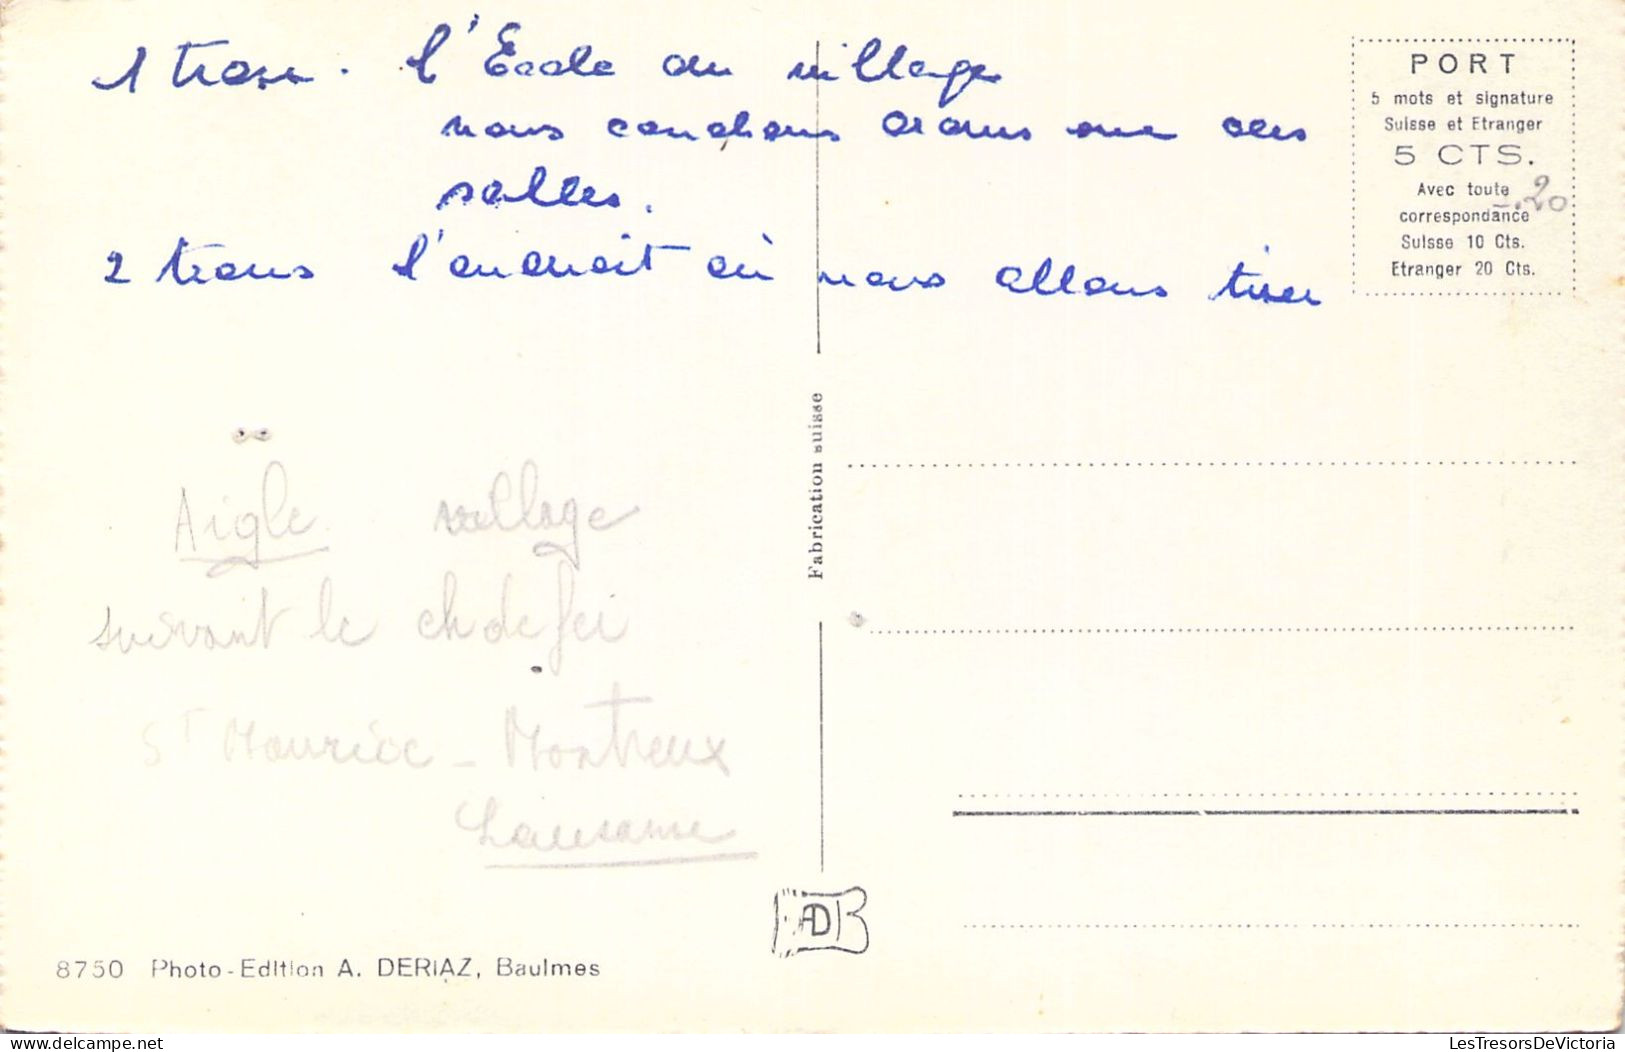 1 trou. l'Ecole du village
nous couchons dans une des
salles.
2 trous l'endroit où nous allons tirer
PORT
5 mots et signature
Suisse et Etranger
5 CTS.
Avec toute
correspondance
Suisse 10 Cts.
Etranger 20 Cts.
1.20
Fabrication suisse
Aigle village
suivant le ch de fer
St Maurice - Montreux
Lausanne
AD
8750 Photo-Edition A. DERIAZ, Baulmes
LesTresorsDeVictoria